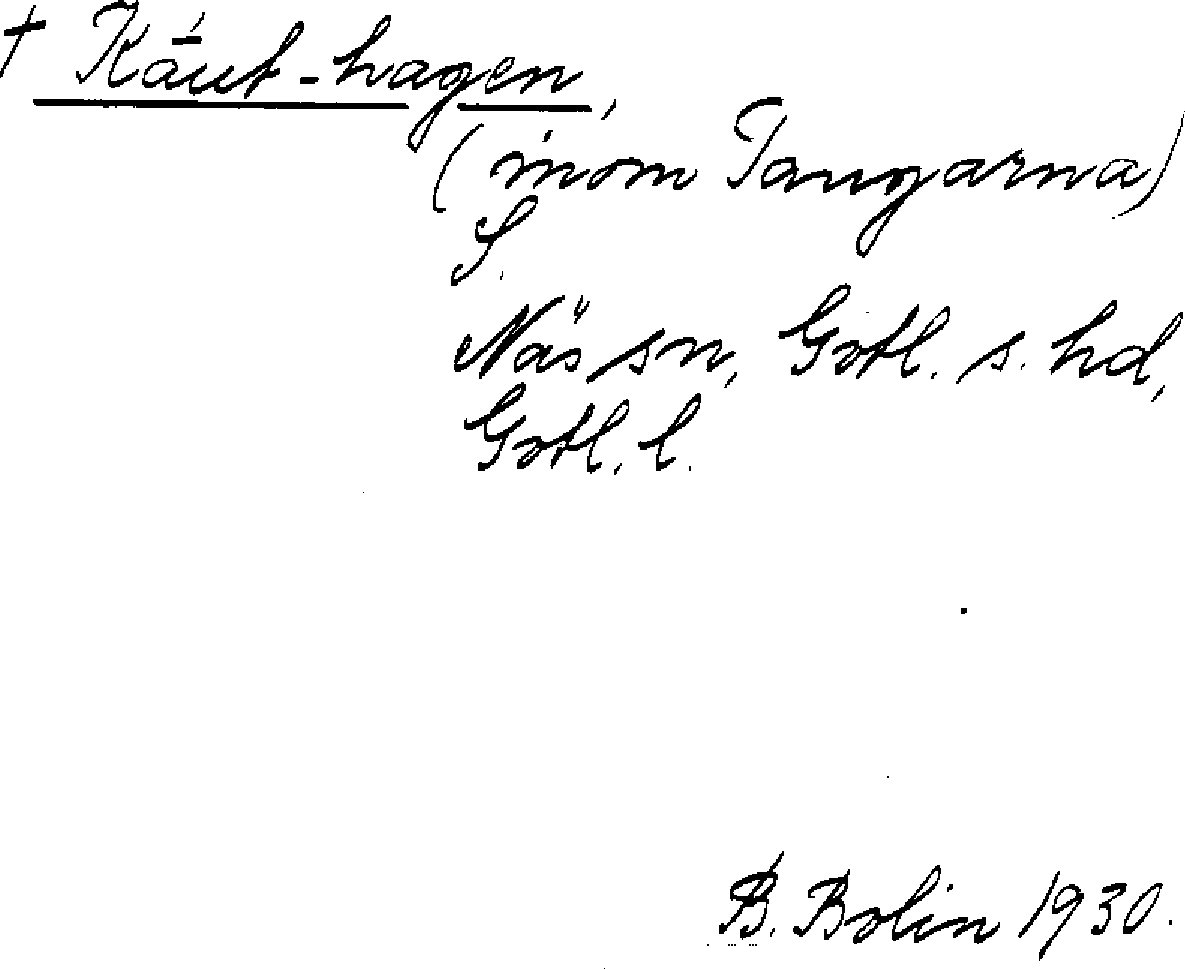 † Kā́ut-hagen,
(inom Tangarna)
S.
Näs sn, Gotl. s. hd,
Gotl. l.
B. Bolin 1930.